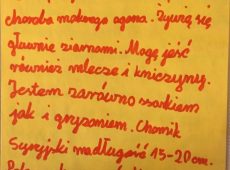 choroba mokrego ogona. Żywią się
głównie ziarnami. Mogę jeść
również mlecze i koniczynę.
Jestem zarówno ssakiem
jak i gryzoniem. Chomik
Syryjski ma długość 15-20 cm.